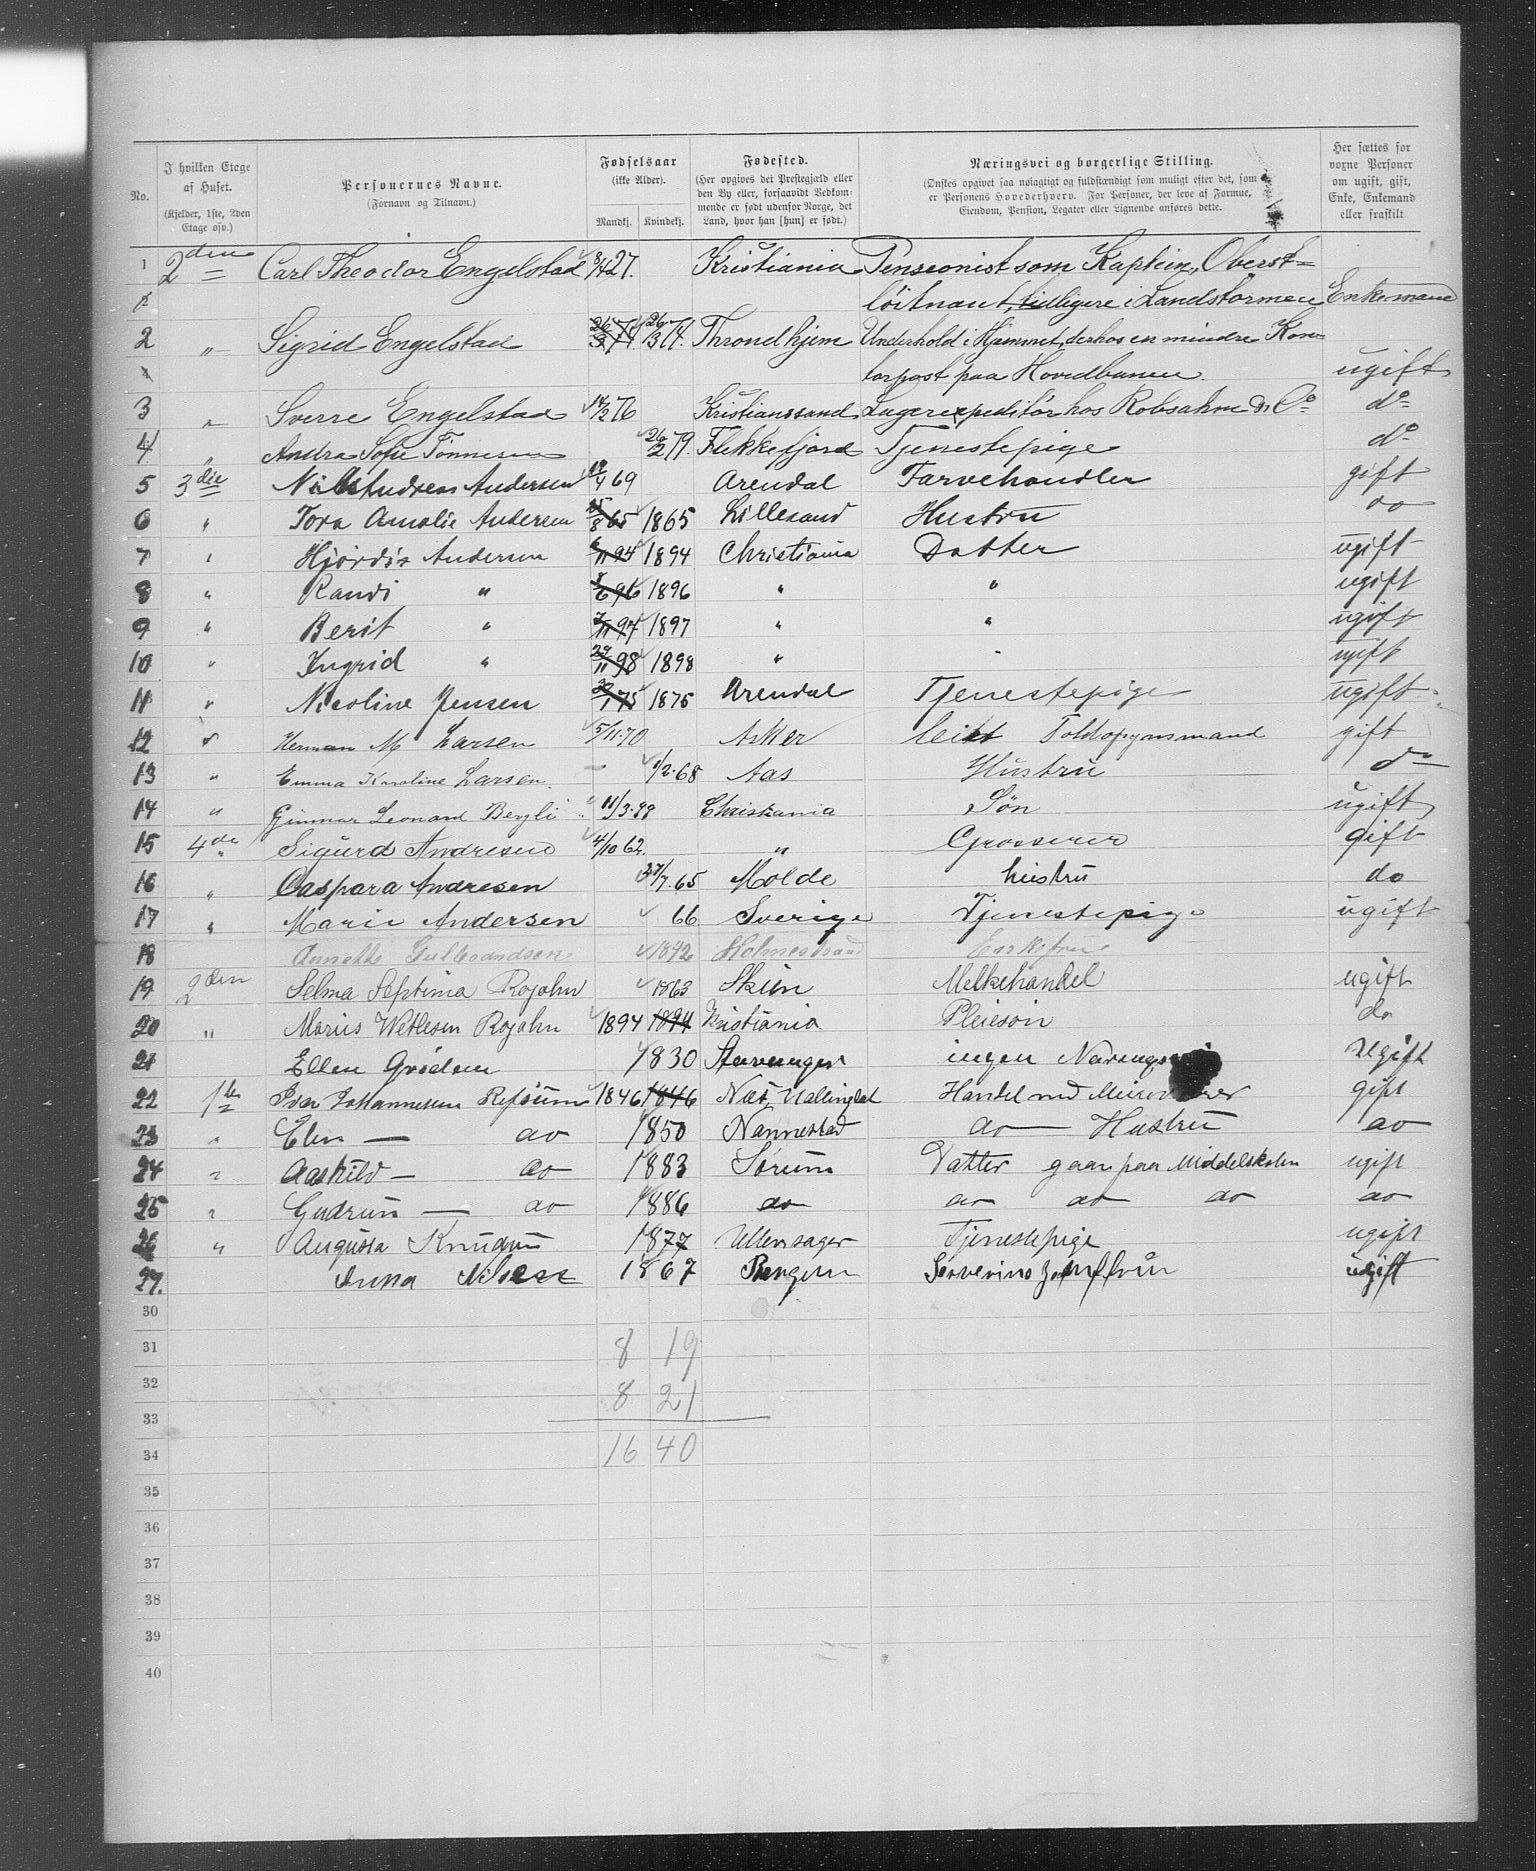 No.
I hvilken Etage af Huset.
(Kjelder, 1ste, 2den Etage osv.)
Personernes Navne.
(Fornavn og Tilnavn.)
Fødselsaar
(ikke Alder).
Mandkj. Kvindekj.
Fødested.
(Her opgives det Prestegjæld eller den By eller, forsaavidt Vedkommende er født udenfor Norge, det Land, hvor han [hun] er født.)
Næringsvei og borgerlige Stilling.
(Ønskes opgivet saa nøiagtigt og fuldstændigt som muligt efter det, som er Personens Hovederhverv. For Personer, der leve af Formue, Eiendom, Pension, Legater eller Lignende anføres dette.
Her sættes for voxne Personer om ugift, gift, Enke, Enkemand eller fraskilt
1 2den Carl Theodor Engelstad 8/4 27. Kristiania Pensionist som Kaptein, Oberst-
løitnant, tidligere i Landstormen Enkemand
2 " Sigrid Engelstad 26/3 74. 26/3 74. Throndhjem Underhold i Hjemmet, derhos en mindre Kon-
torpost paa Hovedbanen. ugift
3 " Sverre Engelstad 14/2 76 Kristianssand Lagerexpeditør hos Robsahm & Co do
4 " Andra Sofie Tønnesen 26/2 79. Flekkefjord Tjenestepige do
5 3die Nils Andreas Andersen 19/4 69 Arendal Farvehandler gift
6 " Tora Amalie Andersen 15/8 65 1865 Lillesand Hustru do
7 " Hjørdis Andersen 6/11 94 1894 Christiania Datter ugift
8 " Randi " 9/6 96 1896 " " ugift
9 " Berit " 7/11 97 1897 " " ugift
10 " Ingrid " 29/11 98 1898 " " ugift
11 " Nicoline Jensen 20/1 75 1875 Arendal Tjenestepige ugift
12 " Herman M Larsen 5/11.70 Asker Toldopsynsmand gift
13 " Emma Karoline Larsen. 1/2.68 Aas Hustru do
14 " Gunnar Leonard Bergli 11/3.99 Christiania Søn ugift
15 4de " Sigurd Andresen 4/10 62. " Grosserer gift
16 " Caspara Andresen 27/7.65 Molde hustru do
17 " Marie Andersen 66 Sverige Tjenestepige ugift
18 Annette Gulbrandsen 1842 Holmestrand Enkefrue
19 2den Selma Septima Rojahn 1863 Skien Melkehandel ugift
20 " Marius Wetlesen Rojahn 1894 1894 Kristiania Pleiesøn do
21 Ellen Grødem 1830 Stavanger ingen Næringsvei Ugift
22 1ste Iver Johannesen Refsum 1846 1846 Næs, Hallingdal Handel med gift
23 " Elen — do 1850 Nannestad do — Hustru do
24 " Aashild — do 1883 Sørum Datter gaar paa Middelskolen ugift
25 " Gudrun — do 1886 do do do do do
26 " Augusta Knudsen 1877 Ullensager Tjenestepige ugift
27. Anna Nilsen 1867 Bergen ugift
30
31 8 19
32 8 21
33
34 16 40
35
36
37
38
39
40